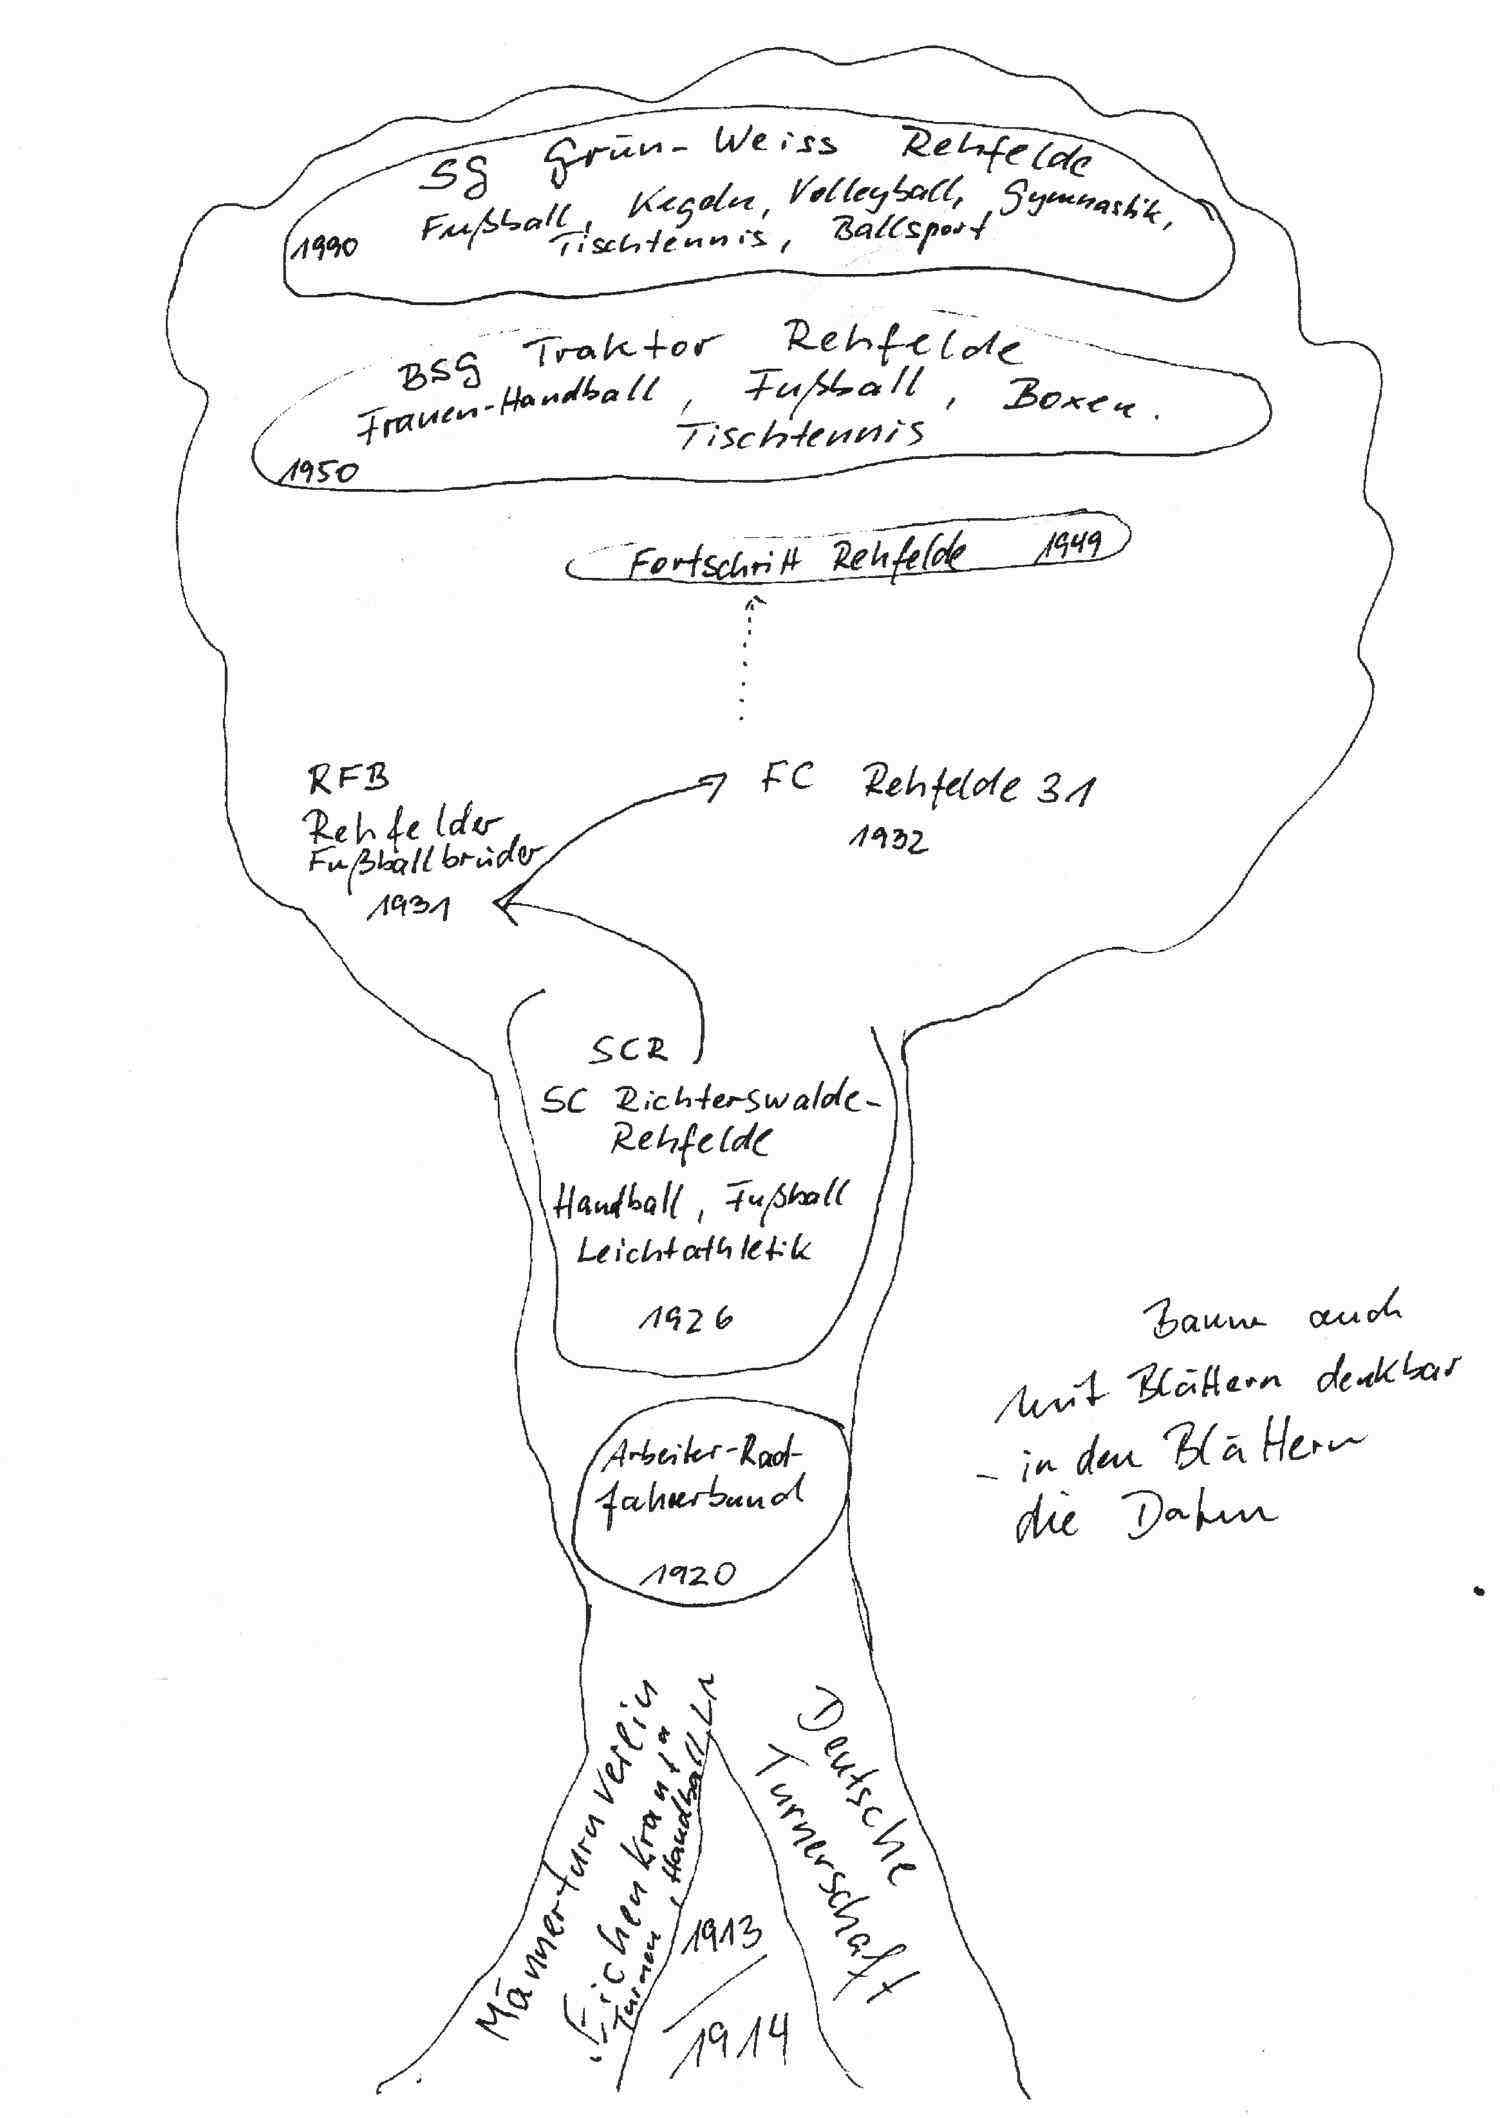 SG Grün-Weiss Rehfelde
Fußball, Kegeln, Volleyball, Gymnastik,
Tischtennis, Ballsport
1990
BSG Traktor Rehfelde
Frauen-Handball, Fußball, Boxen.
Tischtennis
1950
Fortschritt Rehfelde 1949
RFB
Rehfelder
Fußballbrüder
1931
FC Rehfelde 31
1932
SCR
SC Richterswalde-
Rehfelde
Handball, Fußball
Leichtathletik
1926
Baum auch
mit Blättern denkbar
- in den Blättern
die Daten
Arbeiter-Rad-
fahrerbund
1920
Männerturnverein
"Eichenkranz"
Turnen, Handball, LA
1913
1914
Deutsche
Turnerschaft